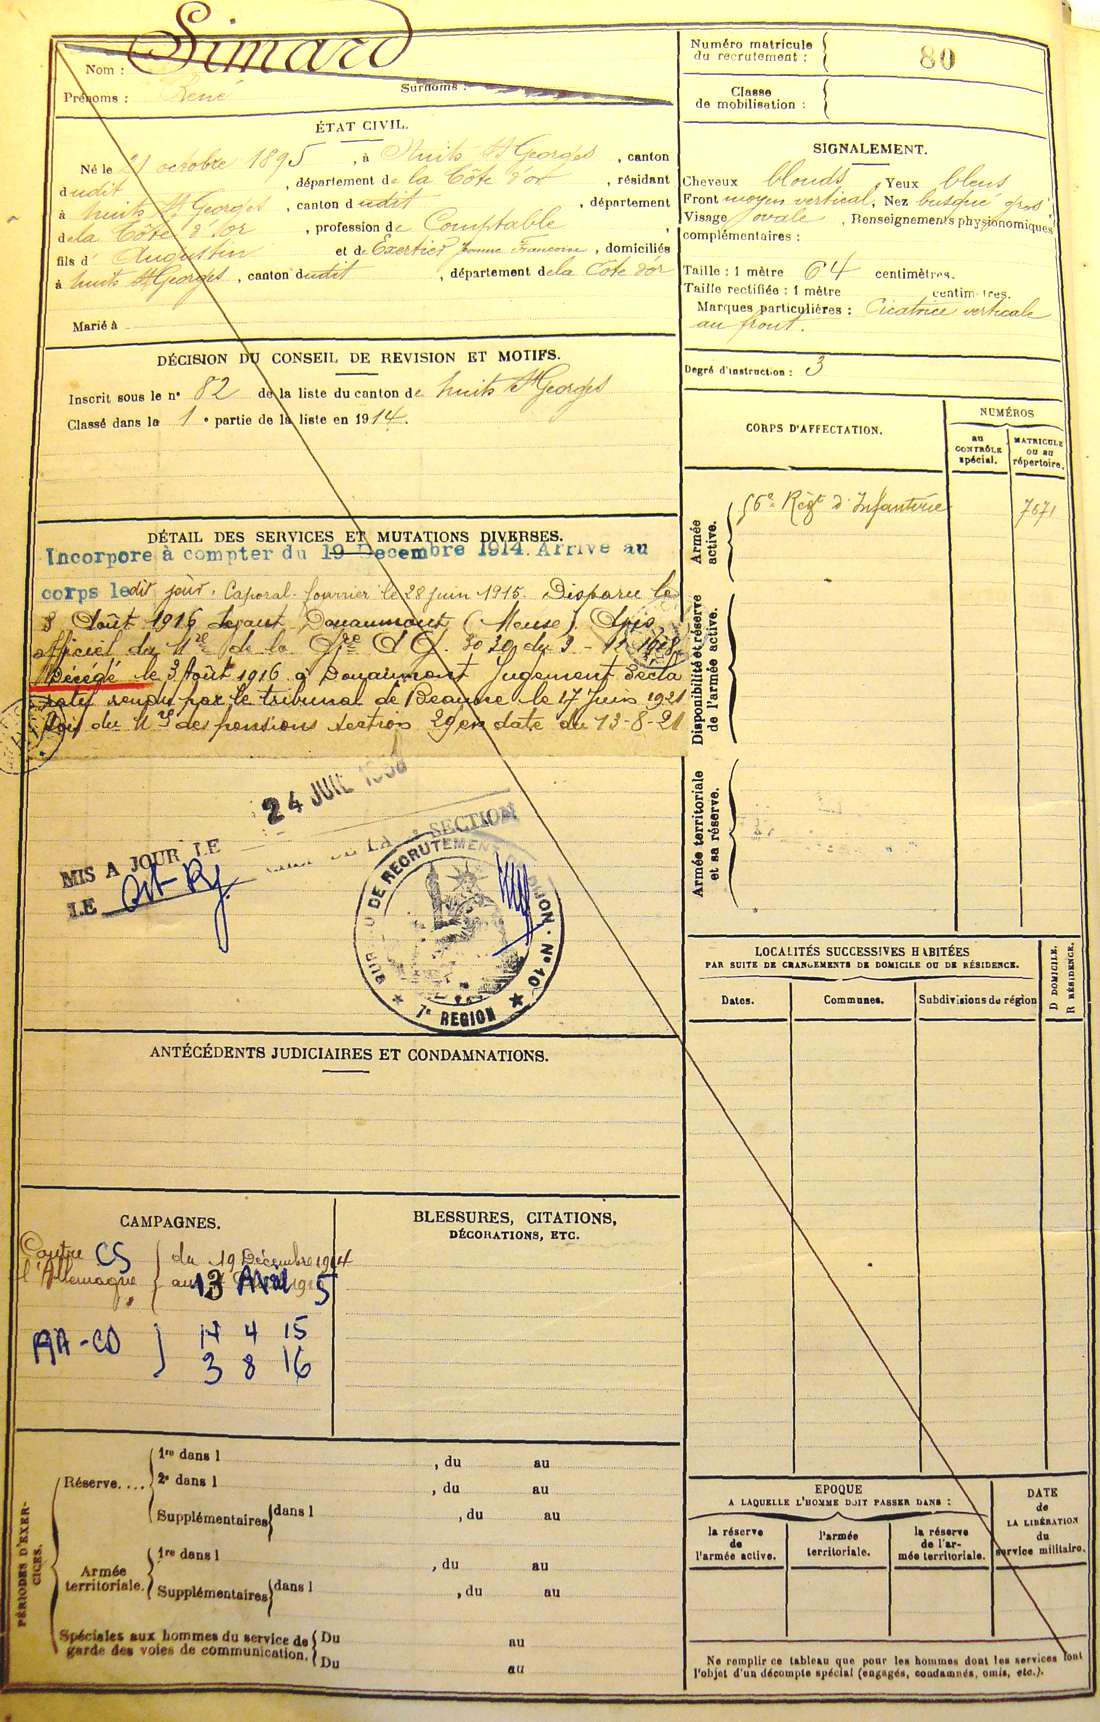 Nom : Simard
Prénoms : René Surnoms :
ÉTAT CIVIL.
Né le 21 octobre 1895, à Nuits St Georges, canton
dudit, département de la Côte d'or, résidant
à Nuits St Georges, canton dudit, département
de la Côte d'or, profession de Comptable,
fils d' Augustin et de Exertier Jeanne Francoise, domiciliés
à Nuits St Georges, canton dudit, département de la Côte d'or
Marié à
DÉCISION DU CONSEIL DE REVISION ET MOTIFS.
Inscrit sous le n° 82 de la liste du canton de Nuits St Georges
Classé dans la 1e partie de la liste en 1914.
DÉTAIL DES SERVICES ET MUTATIONS DIVERSES.
Incorpore à compter du 19 Decembre 1914. Arrive au
corps ledit jour. Caporal fourrier le 28 juin 1915. Disparu le
3 Août 1916 devant Douaumont (Meuse). Avis
officiel du Mre de la Gre
Décédé le 3 Août 1916 à Douaumont Jugement décla
ratif rendu par le tribunal de Beaune le 17 Juin 1921
Avis du Mre des pensions section 29 en date du 13-8-21
24 JUIL
MIS A JOUR LE
LE
DE LA SECTION
BUREAU DE RECRUTEMENT DIJON · N° 10
7e REGION
ANTÉCÉDENTS JUDICIAIRES ET CONDAMNATIONS.
CAMPAGNES.
Contre CS du 19 Décembre 1914
l'Allemagne au 13 Avril 15
AA-CD 14 4 15
3 8 16
BLESSURES, CITATIONS,
DÉCORATIONS, ETC.
PÉRIODES D'EXER-
CICES.
Réserve....
1re dans l , du au
2e dans l , du au
Supplémentaires dans l , du au
Armée
territoriale.
1re dans l , du au
Supplémentaires dans l , du au
Spéciales aux hommes du service de
garde des voies de communication.
Du au
Du au
Numéro matricule
du recrutement : 80
Classe
de mobilisation :
SIGNALEMENT.
Cheveux blonds, Yeux bleus
Front moyen vertical, Nez busqué gros
Visage ovale, Renseignements physionomiques
complémentaires :
Taille : 1 mètre 64 centimètres.
Taille rectifiée : 1 mètre centimètres.
Marques particulières : Cicatrice verticale
au front.
Degré d'instruction : 3
CORPS D'AFFECTATION.
NUMÉROS
AU
CONTRÔLE
spécial.
MATRICULE
OU AU
répertoire.
Armée
active.
56e Régt d'Infanterie 7671
Disponibilité et réserve
de l'armée active.
Armée territoriale
et sa réserve.
LOCALITÉS SUCCESSIVES HABITÉES
PAR SUITE DE CHANGEMENTS DE DOMICILE OU DE RÉSIDENCE.
Dates.
Communes.
Subdivisions de région
D DOMICILE.
R RÉSIDENCE.
EPOQUE
A LAQUELLE L'HOMME DOIT PASSER DANS :
la réserve
de
l'armée active.
l'armée
territoriale.
la réserve
de l'ar-
mée territoriale.
DATE
de
LA LIBÉRATION
du
service militaire.
Ne remplir ce tableau que pour les hommes dont les services font
l'objet d'un décompte spécial (engagés, condamnés, omis, etc.).